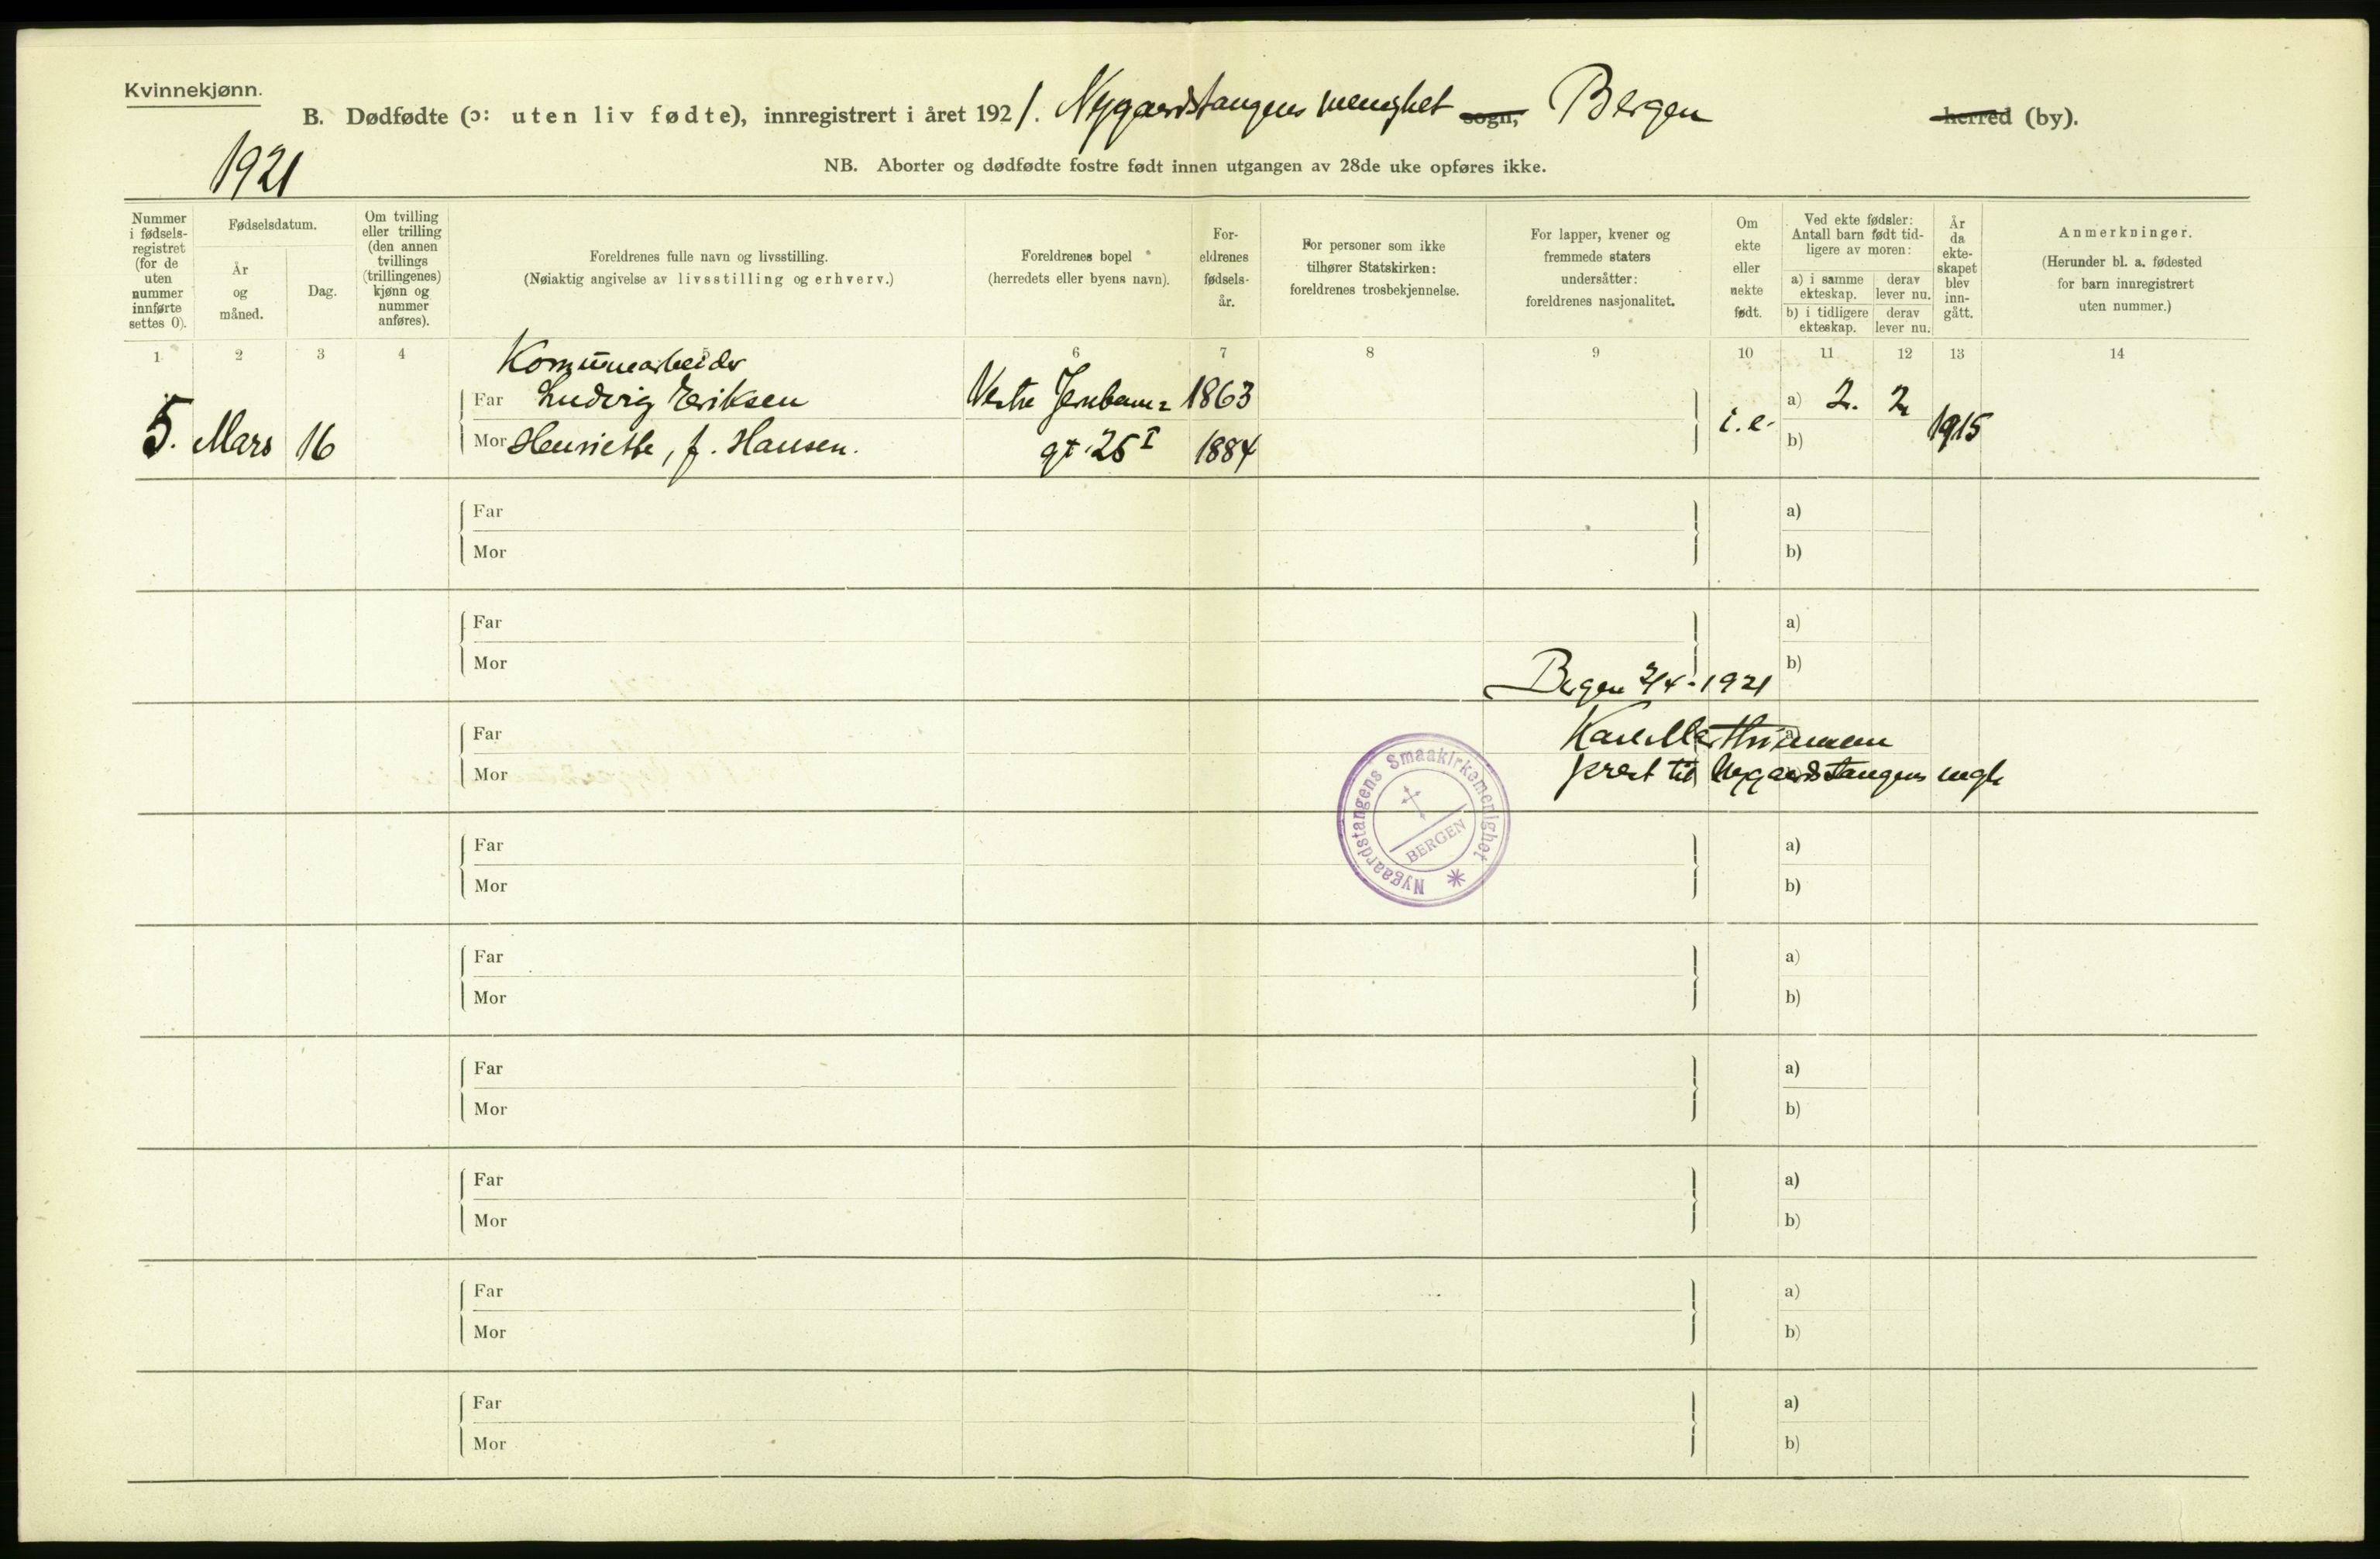 Kvinnekjønn.
B. Dødfødte (ɔ: uten liv fødte), innregistrert i året 1921. Nygaardstangens menighet sogn, Bergen herred (by).
1921
NB. Aborter og dødfødte fostre født innen utgangen av 28de uke opføres ikke.
Nummer
i fødsels-
registret
(for de
uten
nummer
innførte
settes 0).
Fødselsdatum.
År
og
måned.
Dag.
Om tvilling
eller trilling
(den annen
tvillings
(trillingenes)
kjønn og
nummer
anføres).
Foreldrenes fulle navn og livsstilling.
(Nøiaktig angivelse av livsstilling og erhverv.)
Foreldrenes bopel
(herredets eller byens navn).
For-
eldrenes
fødsels-
år.
For personer som ikke
tilhører Statskirken:
foreldrenes trosbekjennelse.
For lapper, kvener og
fremmede staters
undersåtter:
foreldrenes nasjonalitet.
Om
ekte
eller
uekte
født.
Ved ekte fødsler:
Antall barn født tid-
ligere av moren:
a) i samme
ekteskap.
derav
lever nu.
b) i tidligere
ekteskap.
derav
lever nu.
År
da
ekte-
skapet
blev
inn-
gått.
Anmerkninger.
(Herunder bl. a. fødested
for barn innregistrert
uten nummer.)
1 2 3 4 5 6 7 8 9 10 11 12 13 14
Kommunearbeider
Far Ludvig Eriksen Vestre Jernbane= 1863 a) 2. 2
5. Mars 16 Mor Henriette, f. Hansen. gt. 25 I 1884 i.e. b) 1915
Far a)
Mor b)
Far a)
Mor b)
Bergen 2/4-1921
Far a)
prest til Nygaardstangens mgh
Mor
Nygaardstangens Smaakirkemenighet
BERGEN
Far a)
Mor b)
Far a)
Mor b)
Far a)
Mor b)
Far a)
Mor b)
Far a)
Mor b)
Far a)
Mor b)